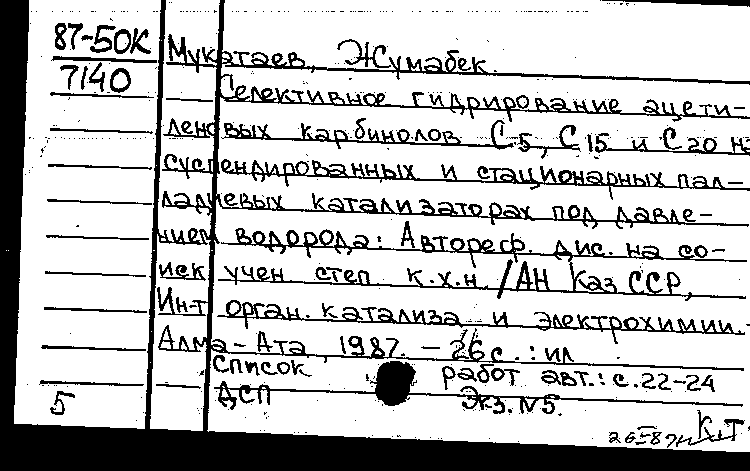 87-50К
7140
Мукатаев, Жумабек.
Селективное гидрирование ацети-
леновых карбинолов С5, С15 и С20 на
суспендированных и стационарных пал-
ладиевых катализаторах под давле-
нием водорода: Автореф. дис. на со-
иск учен степ к.х.н. /АН Каз ССР,
Ин-т орган. катализа и электрохимии. -
Алма-Ата, 1987. - 26 с. : ил
Список работ авт.: с. 22-24
ДСП Экз. N5.
5 К.Т